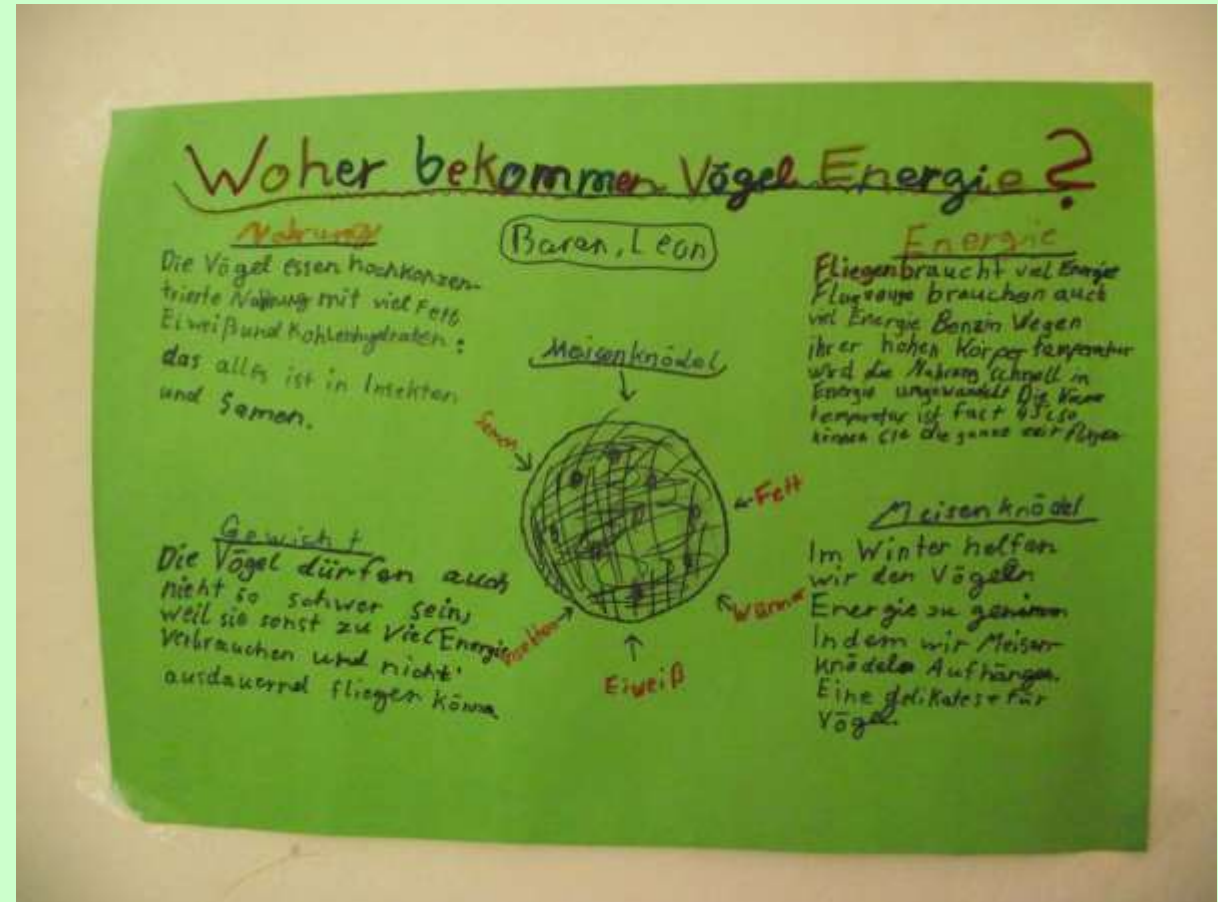 Woher bekommen Vögel Energie?
Baran, Leon
Nahrung
Die Vögel essen hochkonzen-
trierte Nahrung mit viel Fett
Eiweiß und Kohlenhydraten:
das alles ist in Insekten
und Samen.
Gewicht
Die Vögel dürfen auch
nicht so schwer sein,
weil sie sonst zu viel Energie
verbrauchen und nicht
ausdauernd fliegen könn
Meisenknödel
Samen
Fett
Wärme
Eiweiß
Insekten
Energie
Fliegen braucht viel Energie
Flugzeuge brauchen auch
viel Energie Benzin Wegen
ihrer hohen Körpertemperatur
wird die Nahrung schnell in
Energie umgewandelt Die
temperatur ist fast
können sie die ganze zeit fliegen
Meisenknödel
Im Winter helfen
wir den Vögeln
Energie zu
Indem wir Meisen-
knödel Aufhängen.
Eine delikatese für
Vögel.